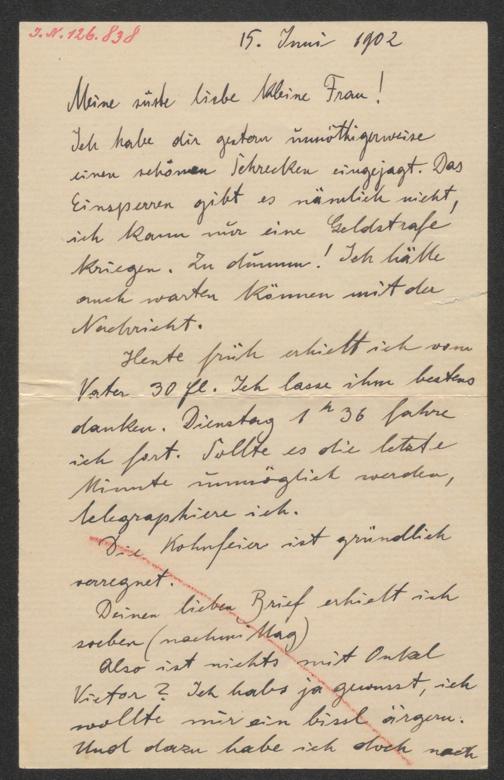 J.N. 126.838
15. Juni 1902
Meine süße liebe kleine Frau!
Ich habe dir gestern unnöthigerweise
einen schönen Schrecken eingejagt. Das
Einsperren gibt es nämlich nicht,
ich kann nur eine Geldstrafe
kriegen. Zu dumm! Ich hätte
auch warten können mit der
Nachricht.
Heute früh erhielt ich vom
Vater 30 fl. Ich lasse ihm bestens
danken. Dienstag 1 h 36 fahre
ich fort. Sollte es die letzte
Minute unmöglich werden,
telegraphiere ich.
Die Kohnfeier ist gründlich
verregnet.
Deinen lieben Brief erhielt ich
soeben (nachmittag)
Also ist nichts mit Onkel
Victor? Ich habs ja gewusst, ich
wollte mir ein bissl ärgern.
Und dazu habe ich doch noch